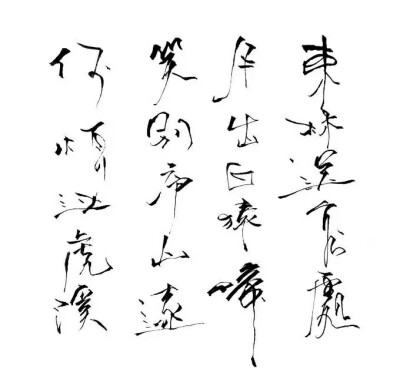 東林送客處
月出白猿啼
笑別庐山遠
何煩過虎溪